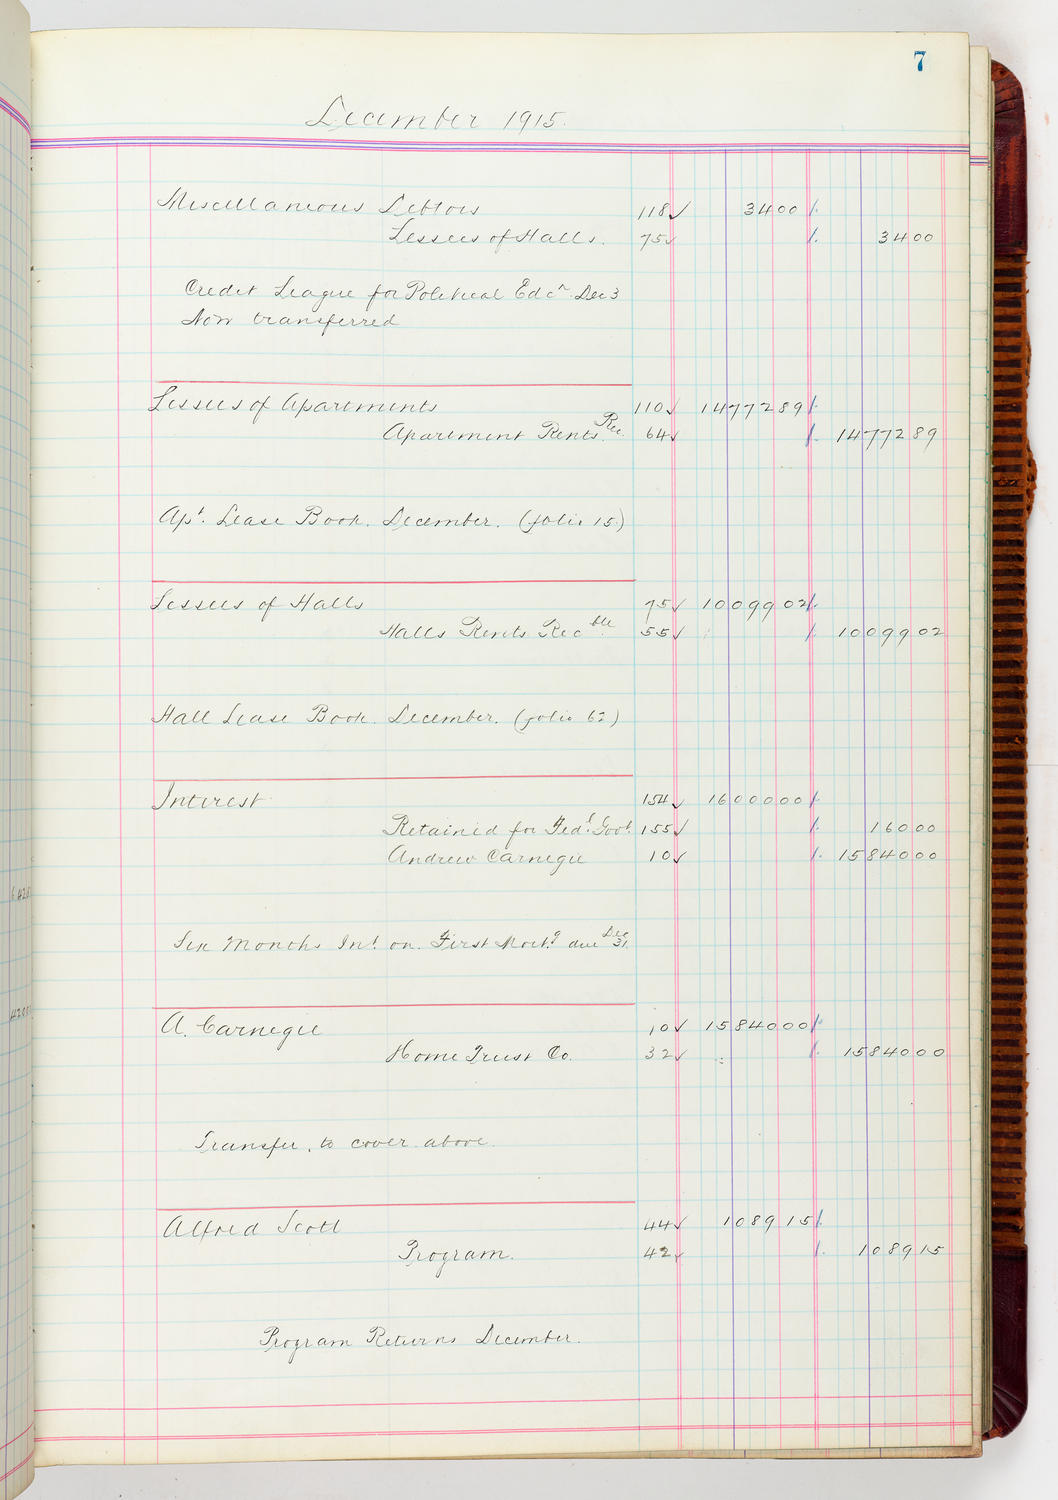 7
December 1915.
Miscellaneous Debtors 118✓ 3400 /.
Lessees of Halls. 75✓ /. 3400
Credit League for Political Edcn. Dec 3
Now transferred
Lessees of Apartments 110✓ 1477289 /.
Apartment Rents Rec. 64✓ /. 1477289
Apt. Lease Book. December. (folio 15.)
Lessees of Halls 75✓ 1009902 /.
Halls Rents Recble. 55✓ /. 1009902
Hall Lease Book. December. (folio 62)
Interest 154✓ 1600000 /.
Retained for Fedl. Govt. 155✓ /. 16000
Andrew Carnegie 10✓ /. 1584000
Six Months Int. on First Mortg. due Dec 31.
A. Carnegie 10✓ 1584000 /.
Home Trust Co. 32✓ /. 1584000
Transfer to cover above.
Alfred Scott 44✓ 108915 /.
Program. 42✓ /. 108915
Program Returns December.